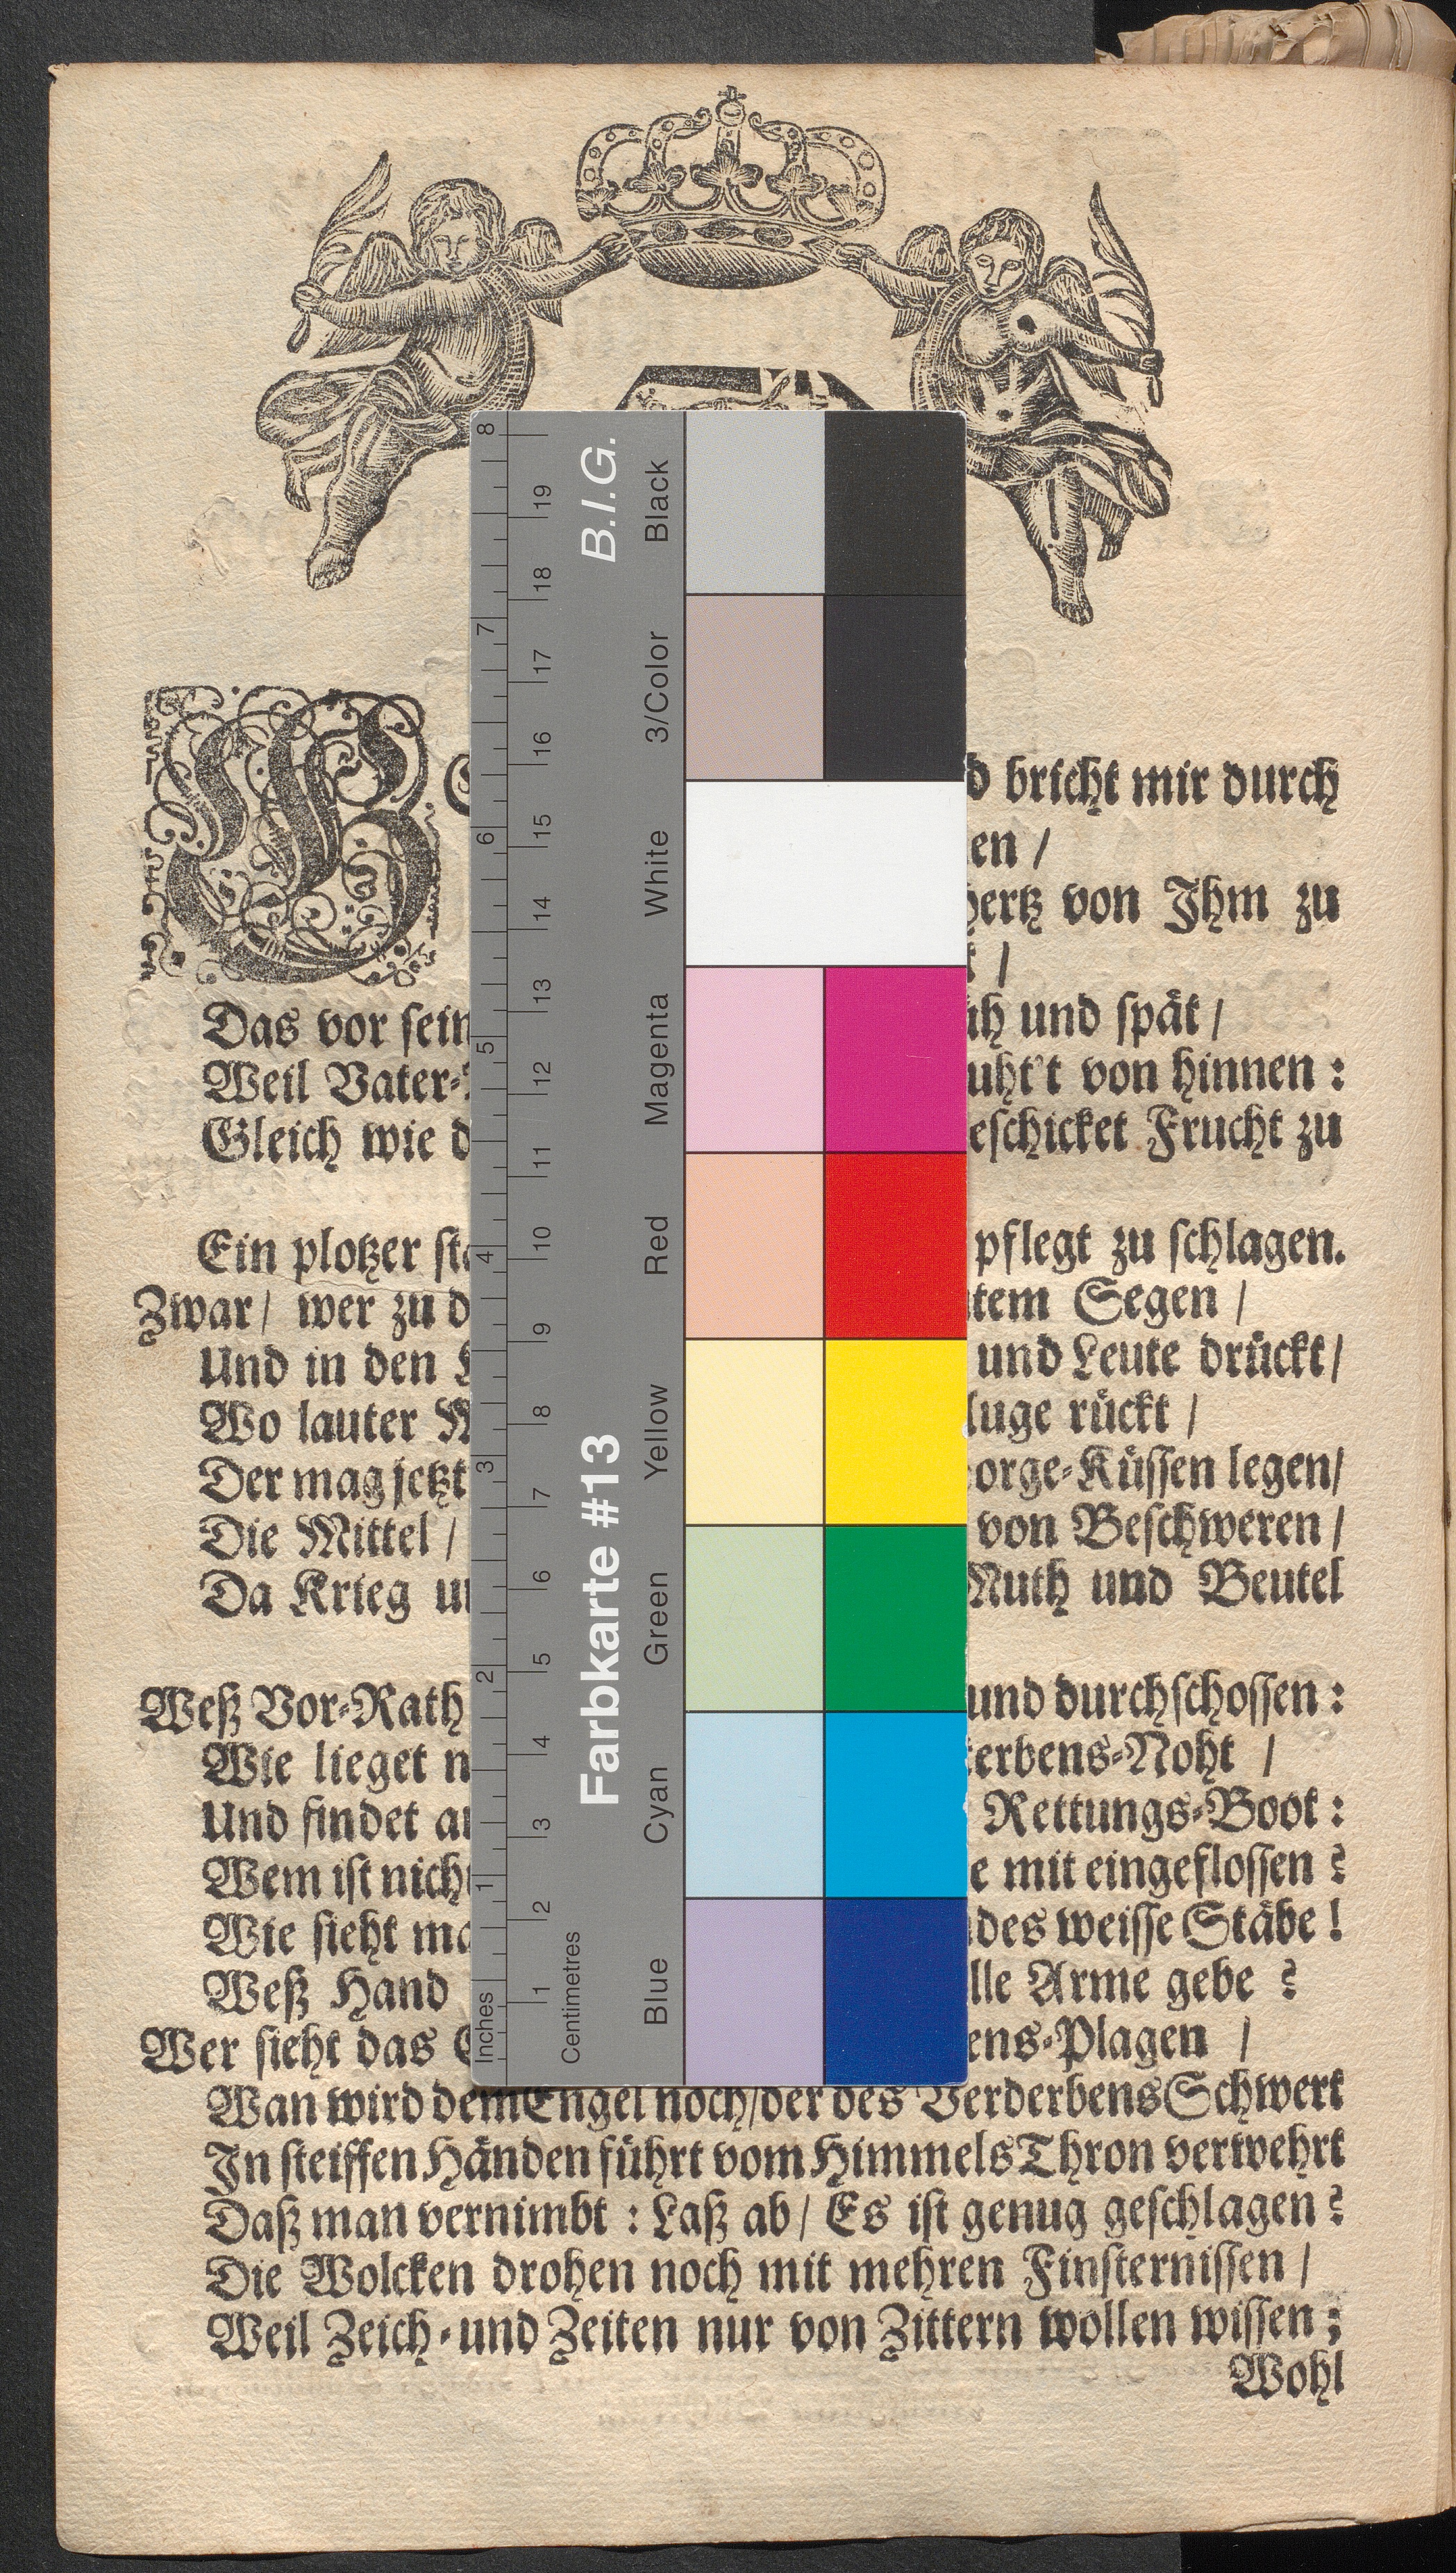 W
d bricht mir durch
en /
hertz von Ihm zu
/
Das vor sein
h und spät /
Weil Vater-
uht't von hinnen :
Gleich wie d
eschicket Frucht zu
Ein plotzer sta
pflegt zu schlagen.
Zwar / wer zu d
tem Segen /
Und in den
und Leute drückt /
Wo lauter
luge rückt /
Der mag jetzt
orge-Küssen legen /
Die Mittel /
von Beschweren /
Da Krieg un
Muth und Beutel
Weß Vor-Rath
und durchschossen :
Wie lieget n
terbens-Noht /
Und findet an
Rettungs-Boot :
Wem ist nicht
e mit eingeflossen ?
Wie sieht ma
ndes weisse Stäbe !
Weß Hand
lle Arme gebe ?
Wer sieht das
ens-Plagen /
Wan wird dem Engel noch / der des Verderbens Schwert
In steiffen Händen führt vom Himmels Thron verwehrt
Daß man vernimbt : Laß ab / Es ist genug geschlagen ?
Die Wolcken drohen noch mit mehren Finsternissen /
Weil Zeich- und Zeiten nur von Zittern wollen wissen ;
Wohl
B.I.G.
Farbkarte #13
Black
3/Color
White
Magenta
Red
Yellow
Green
Cyan
Blue
8 7 6 5 4 3 2 1 Inches
19 18 17 16 15 14 13 12 11 10 9 8 7 6 5 4 3 2 1 Centimetres